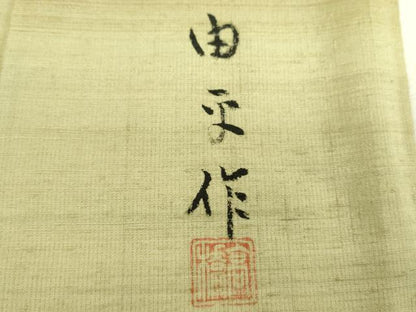 由平作